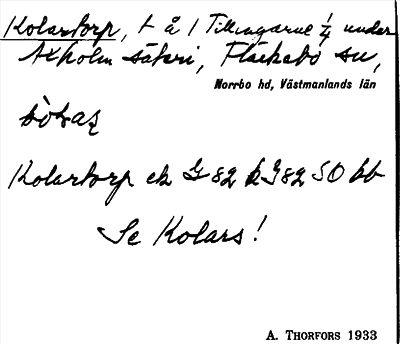 Kolartorp, t å 1 Tillingarne 1/4 under
Axholm säteri, Fläckebo sn,
Norrbo hd, Västmanlands län
Kolartorp ek G 82 b G 82 SO bb
Se Kolars!
A. THORFORS 1933